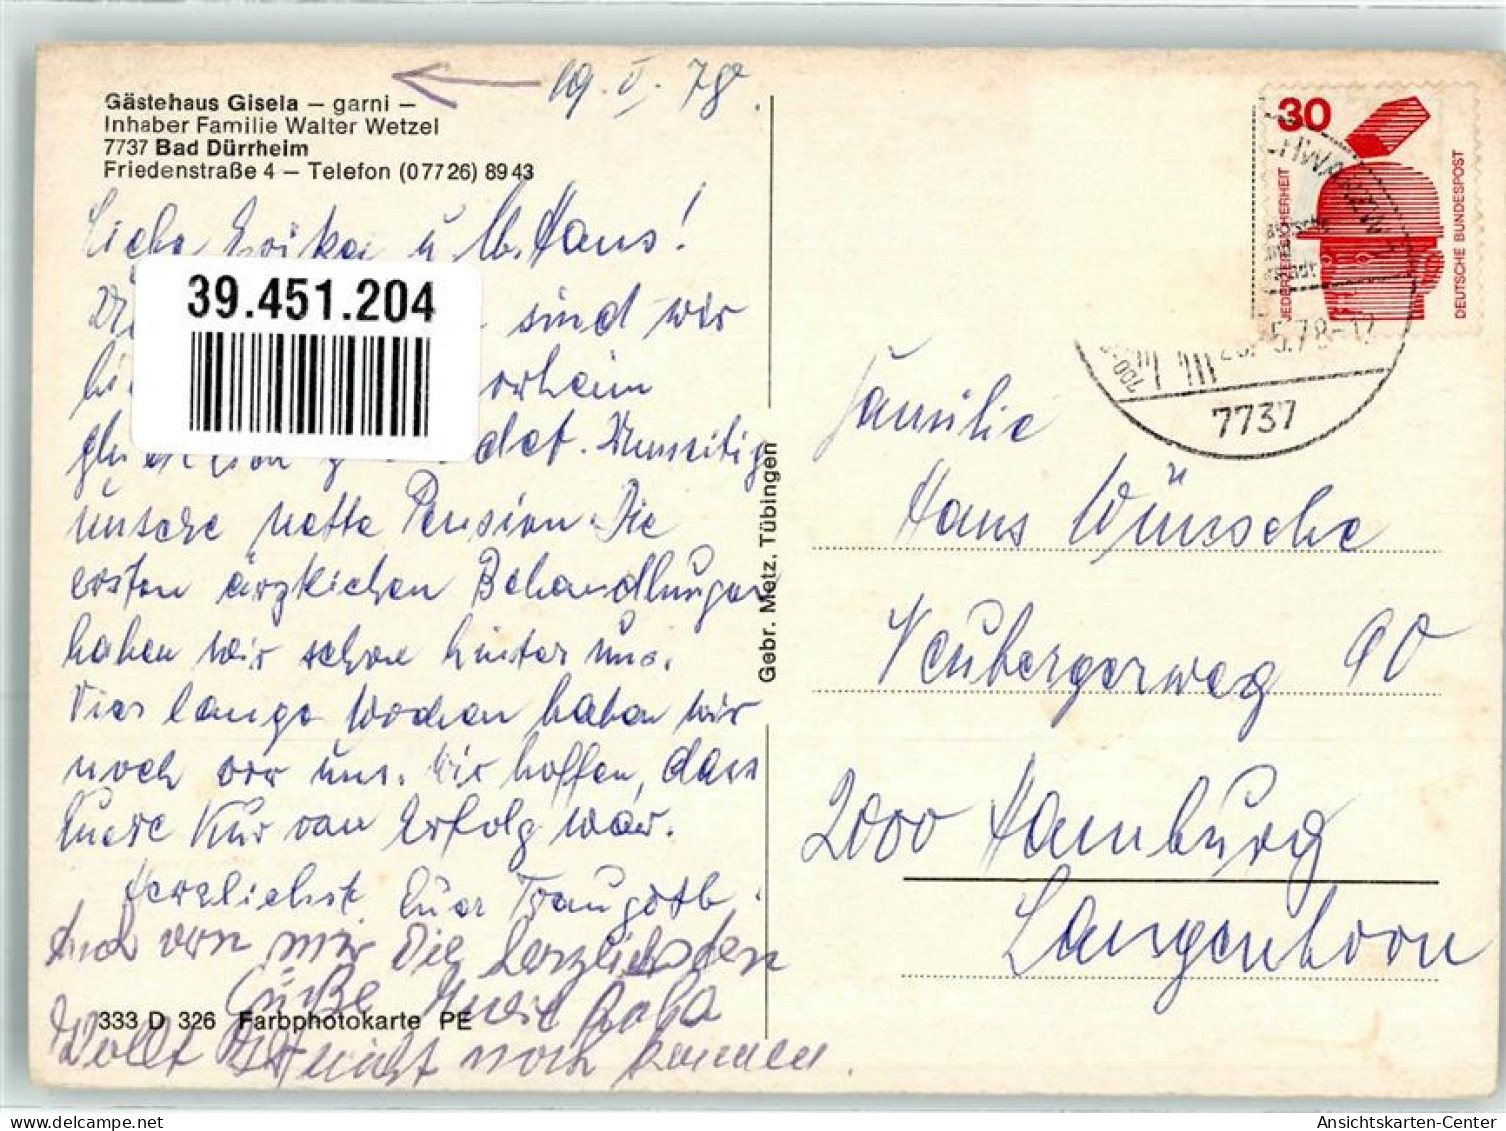 19. V. 78.
Gästehaus Gisela – garni –
Inhaber Familie Walter Wetzel
7737 Bad Dürrheim
Friedenstraße 4 – Telefon (07726) 8943
Liebe Erika u. Hans!
39.451.204
sind wir
gelandet. Umseitig
unsere nette Pension. Die
ersten ärztlichen Behandlungen
haben wir schon hinter uns.
Vier lange Wochen haben wir
noch vor uns. Wir hoffen, dass
Euere Kur von Erfolg war.
Herzlichst Euer Traugott
Auch von mir die herzlichsten
Grüße
333 D 326 Farbphotokarte PE
Wollt Ihr nicht noch kommen
Gebr. Metz, Tübingen
30
JEDERZEIT SICHERHEIT
DEUTSCHE BUNDESPOST
5.78-12
7737
Familie
Hans Wünsche
Neubergerweg 90
2000 Hamburg
Langenhorn
Ansichtskarten-Center